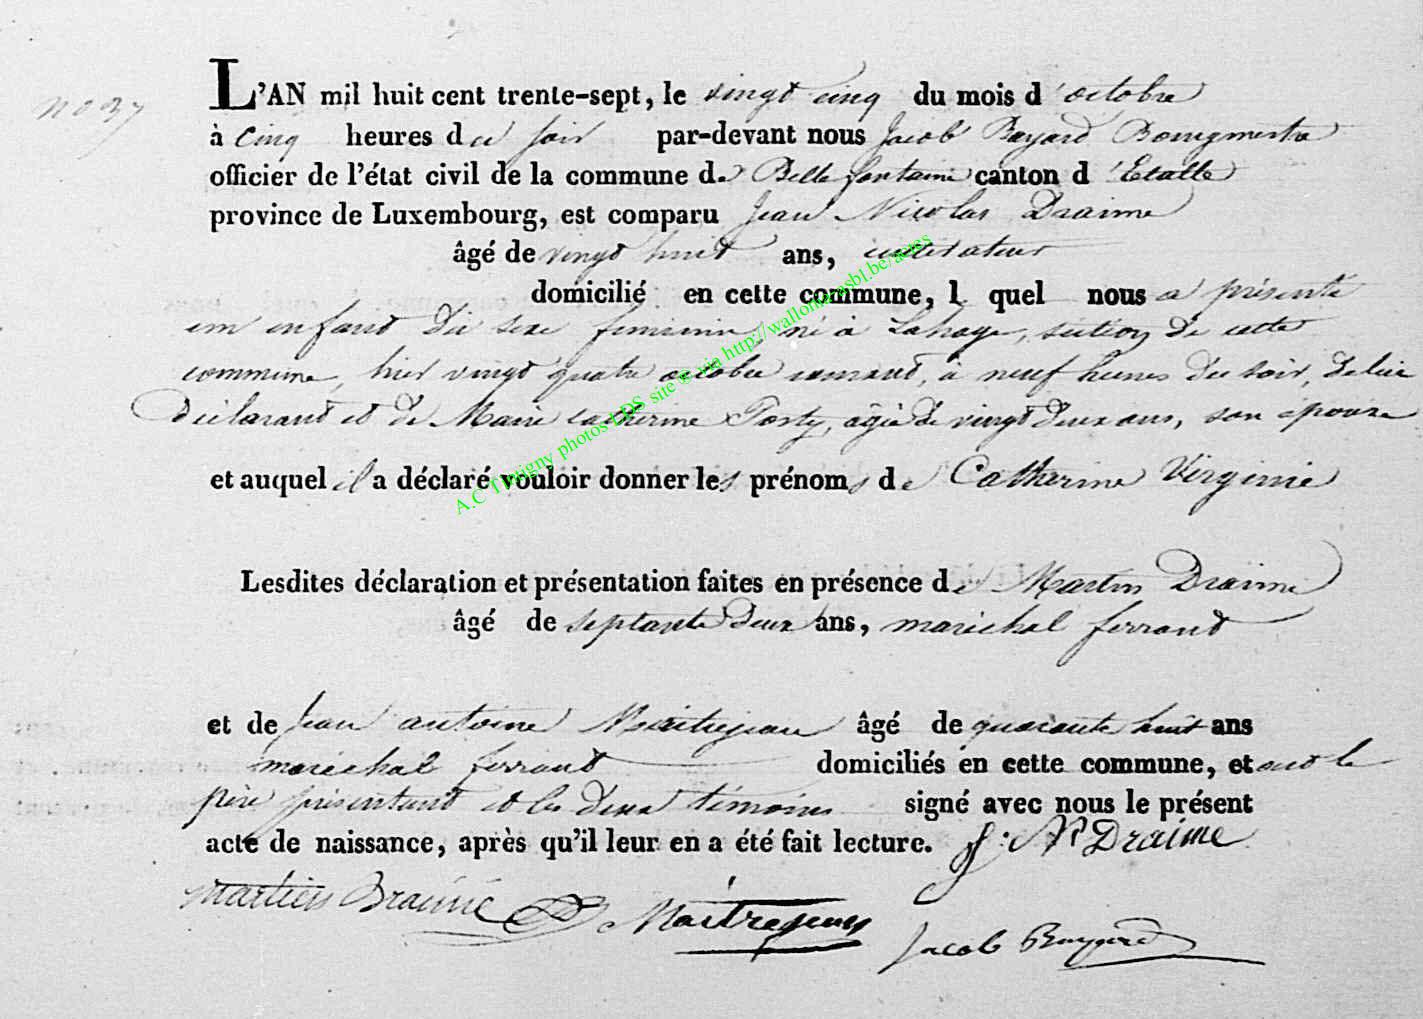 No 37
L'AN mil huit cent trente-sept, le vingt cinq du mois d'octobre
à cinq heures du soir par-devant nous Jacob Bayard Bourgmestre
officier de l'état civil de la commune de Bellefontaine canton d'Etalle
province de Luxembourg, est comparu Jean Nicolas Draime
âgé de vingt huit ans, cultivateur
domicilié en cette commune, lequel nous a présenté
un enfant du sexe feminin, né à Lahage, section de cette
commune, hier vingt quatre octobre courant, à neuf heures du soir, de lui
déclarant et de Marie Catherine Forty, agée de vingt deux ans, son épouse
et auquel il a déclaré vouloir donner les prénoms de Catherine Virginie
Lesdites déclaration et présentation faites en présence de Martin Draime
âgé de septante deux ans, maréchal ferrant
et de Jean antoine Maitrejean âgé de quarante huit ans
maréchal ferrant domiciliés en cette commune, et ont le
père présentant et les deux témoins signé avec nous le présent
acte de naissance, après qu'il leur en a été fait lecture. J: Ns Draime
Martin Draime Maitrejean
Jacob Bayard
A.C Tintigny photos LDS site © via http://wallonia-asbl.be/actes